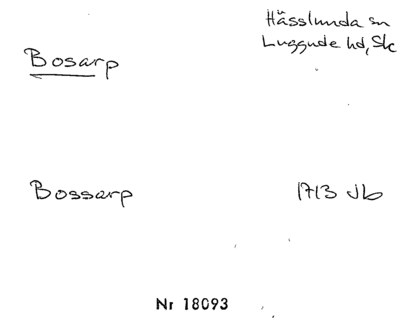 Hässlunda sn
Luggude hd, Sk
Bosarp
Bossarp 1713 Jb
Nr 18093